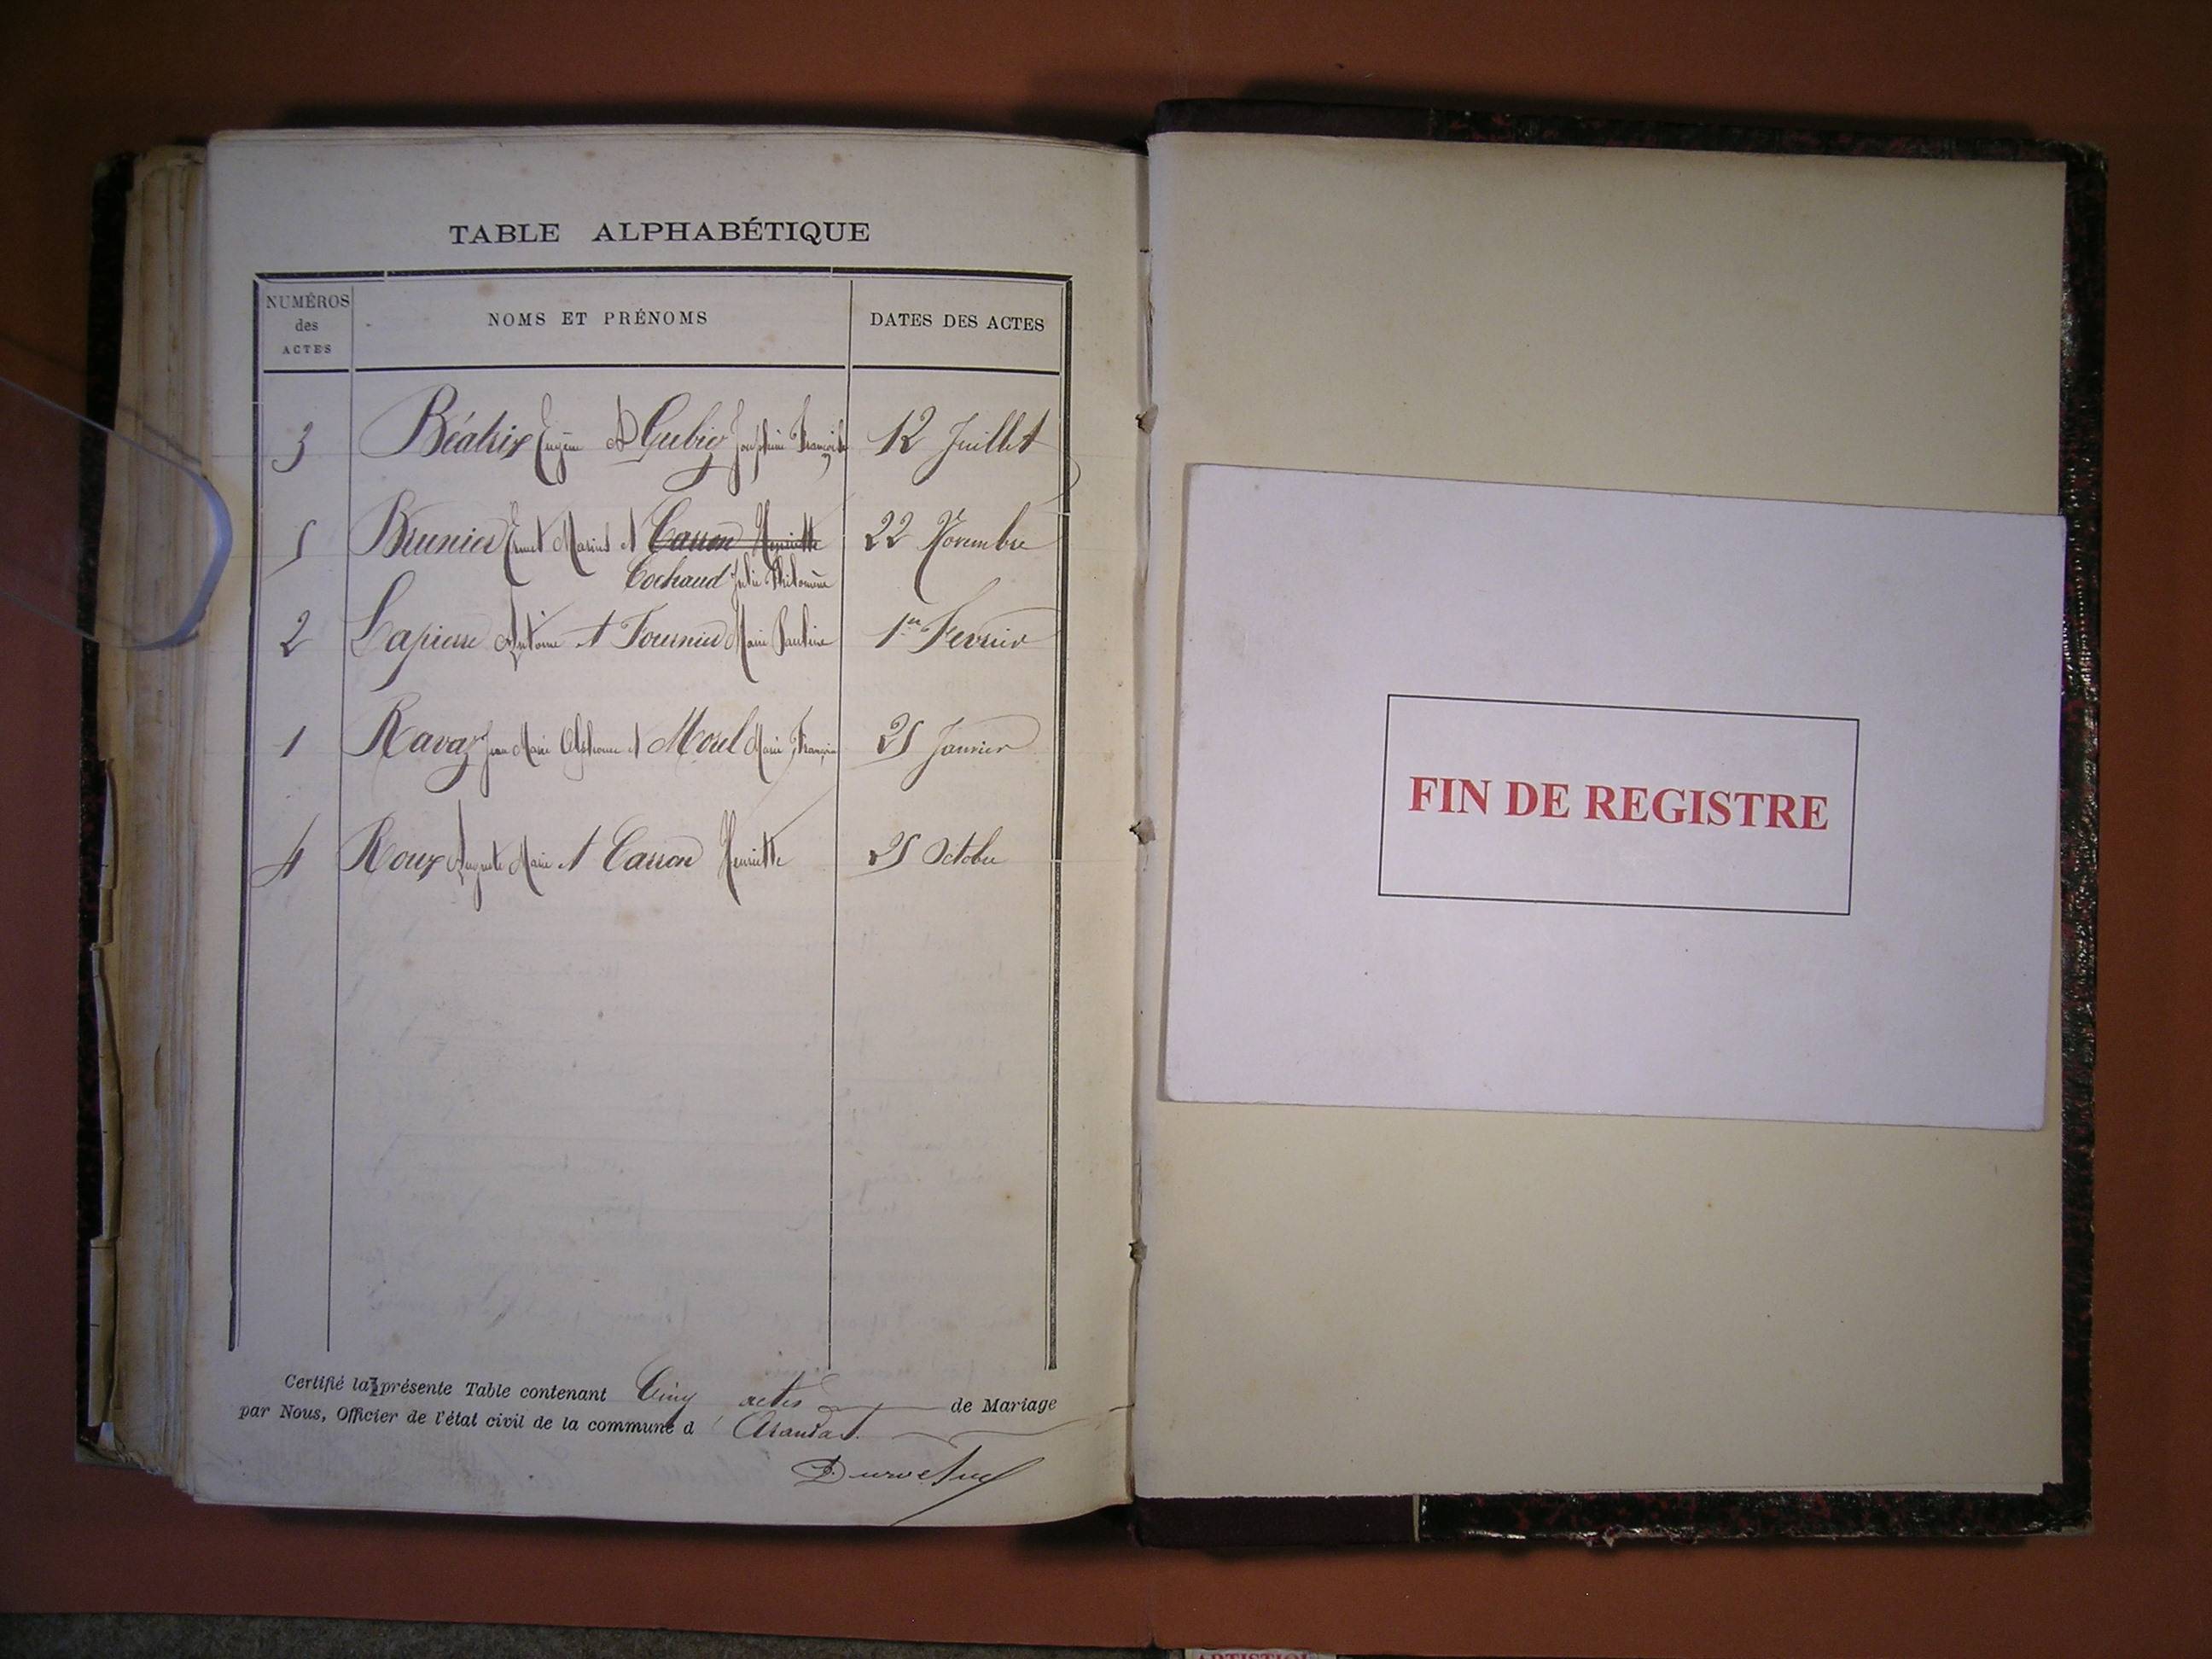 TABLE ALPHABÉTIQUE
NUMÉROS
des
ACTES
NOMS ET PRÉNOMS
DATES DES ACTES
3 Béatrix Eugène et Gubier Joséphine Françoise 12 Juillet
5 Brunier Ernest Marius et Carron Henriette 22 Novembre
Cochaud Julie Philomène
2 Lapierre Antoine et Fournier Marie Pauline 1er Fevrier
1 Ravaz Jean Marie Alphonse et Morel Marie 25 Janvier
4 Roux Auguste Marie et Carron Henriette 25 Octobre
Certifié la présente Table contenant Cinq actes de Mariage
par Nous, Officier de l'état civil de la commune d'Arandas.
FIN DE REGISTRE